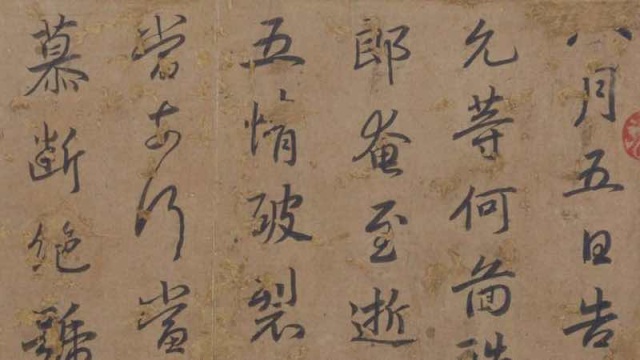 八月五日告
允等何啚酷
郎奄至逝
五情破裂
當奈何當
慕斷絕號